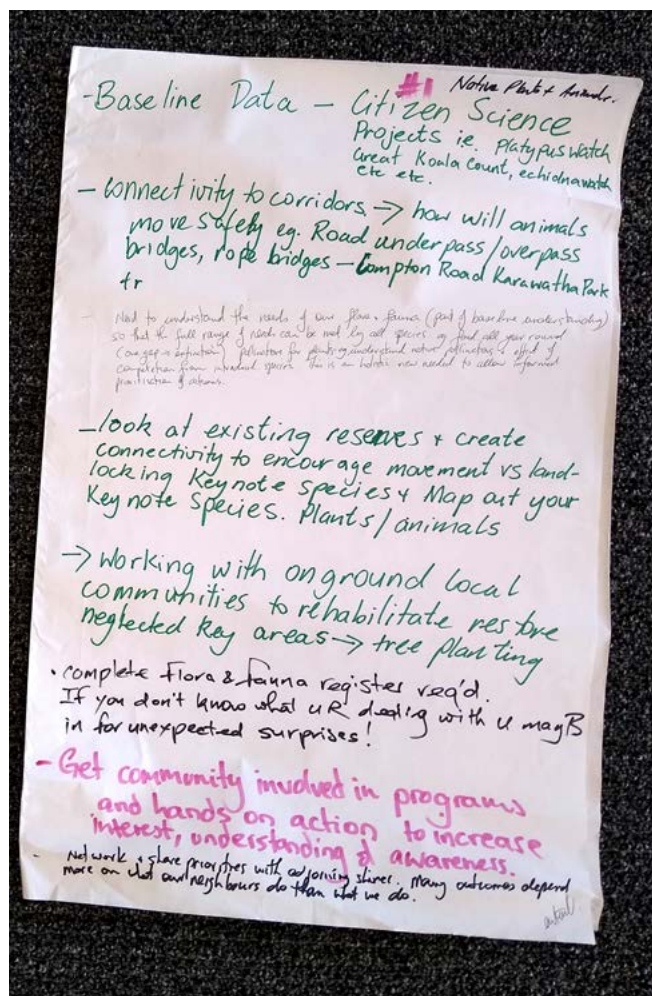 #1 Native Plants & Animals.
- Baseline Data - Citizen Science
Projects i.e. Platypus watch
Great Koala Count, echidnawatch
etc etc.
- Connectivity to corridors → how will animals
move safely eg. Road underpass/overpass
bridges, rope bridges - Compton Road Karawatha Park
tr
- Need to understand the needs of our flora & fauna (part of baseline understanding)
so that the full range of needs can be met by all species eg food all year round
(any gap = extinction) pollination for plants eg understand native pollinators & effect of
competition from introduced species. This is an holistic view needed to allow informed
prioritisation of actions.
- look at existing reserves & create
connectivity to encourage movement vs land-
locking Keynote Species & Map out your
Keynote Species. Plants/animals
→ Working with onground local
communities to rehabilitate restore
neglected Key areas → tree planting
• complete Flora & Fauna register req'd.
If you don't know what u R dealing with u may B
in for unexpected surprises!
- Get community involved in programs
and hands on action to increase
interest, understanding & awareness.
- Network & share priorities with adjoining shires. Many outcomes depend
more on what our neighbours do than what we do.